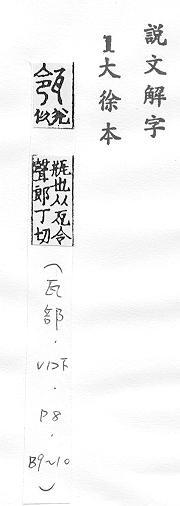 說文解字
1大徐本
瓴
瓮
似
瓶也从瓦令
聲郎丁切
(瓦部．V12下．P8．B9~10)